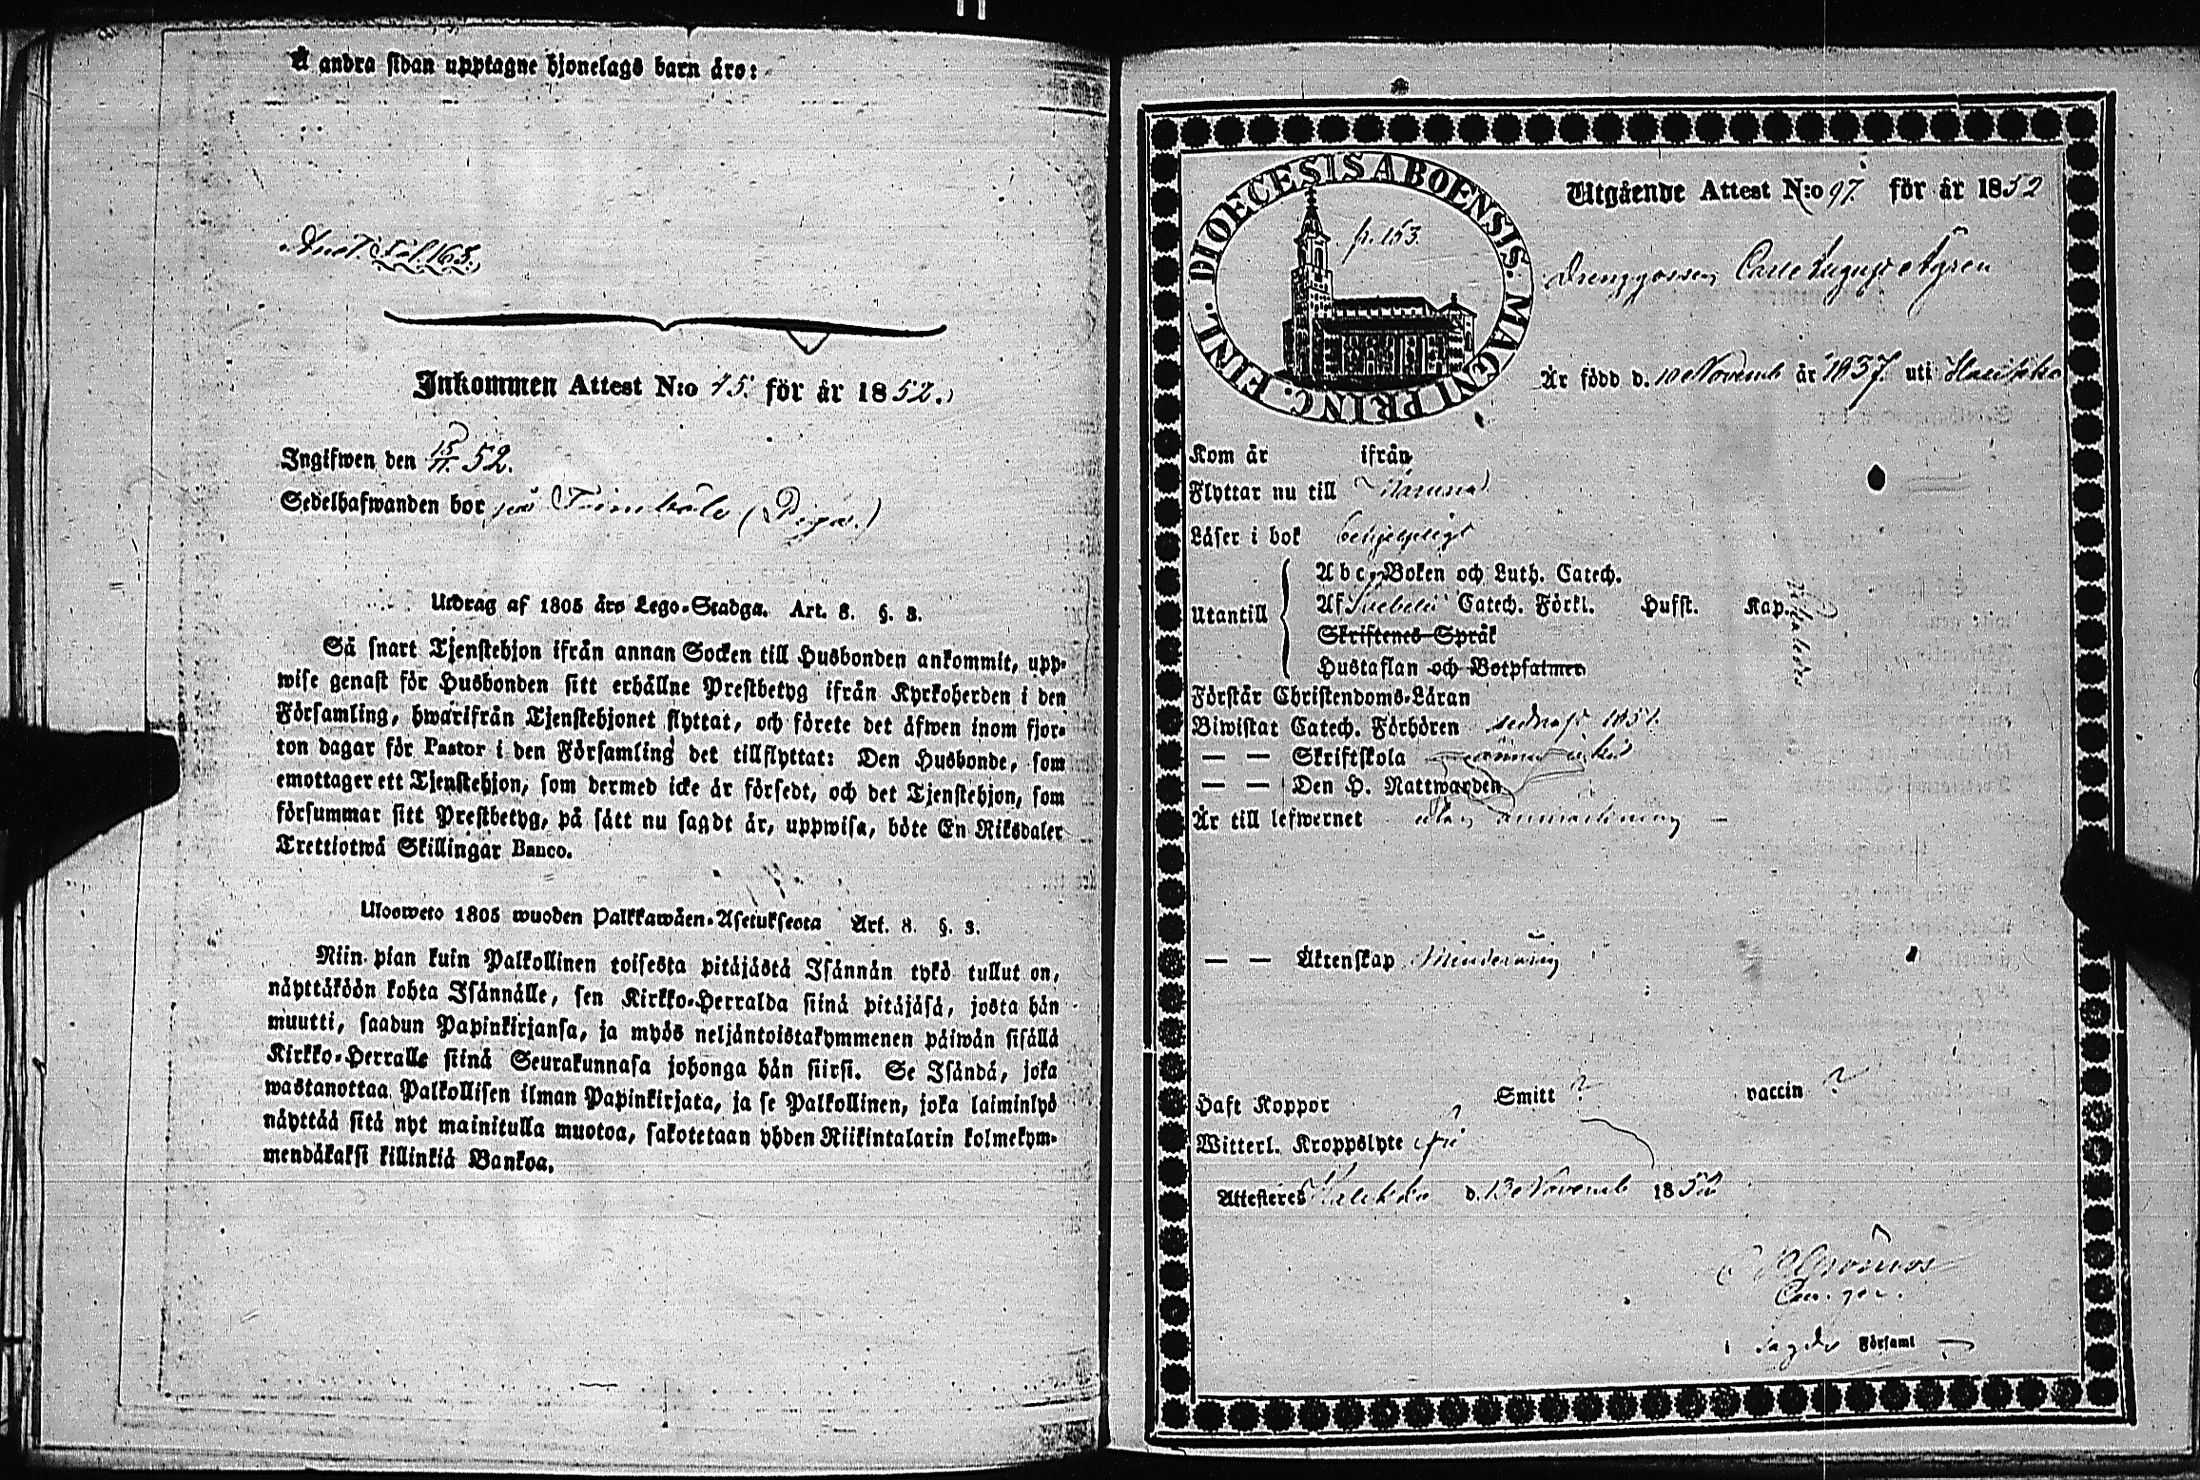 Å andra sidan upptagne hjonelags barn äro:
Anot. Fol. 163.
Inkommen Attest N:o 75. för år 1852.
Ingifwen den 15/11. 52.
Sedelhafwanden bor på
Utdrag af 1805 års Lego-Stadga. Art. 8. §. 3.
Så snart Tjenstehjon ifrån annan Socken till Husbonden ankommit, upp-
wise genast för Husbonden sitt erhållne Prestbetyg ifrån Kyrkoherden i den
Församling, hwarifrån Tjenstehjonet flyttat, och förete det äfwen inom fjor-
ton dagar för Pastor i den Församling det tillflyttat: Den Husbonde, som
emottager ett Tjenstehjon, som dermed icke är försedt, och det Tjenstehjon, som
försummar sitt Prestbetyg, på sätt nu sagdt är, uppwisa, böte En Riksdaler
Trettiotwå Skillingar Banco.
Ulosweto 1805 wuoden Palkkawäen-Asetuksesta Art. 8. §. 3.
Niin pian kuin Palkollinen toisesta pitäjästä Isännän tykö tullut on,
näyttäköön kohta Isännälle, sen Kirkko-Herralda siinä pitäjäsä, josta hän
muutti, saadun Papinkirjansa, ja myös neljäntoistakymmenen päiwän sisällä
Kirkko-Herralle siinä Seurakunnasa johonga hän siirsi. Se Isändä, joka
wastanottaa Palkollisen ilman Papinkirjata, ja se Palkollinen, joka laiminlyö
näyttää sitä nyt mainitulla muotoa, sakotetaan yhden Riikintalarin kolmekym-
mendäkaksi killinkiä Bankoa.
DIOECESIS ABOENSIS. MAGNI PRINC. FINL.
p. 153.
Utgående Attest N:o 97. för år 1852
Drenggossen Carl August Ågren
Är född d. 10 Novemb år 1837. uti Halikko
Kom år ifrån
Flyttar nu till
Läser i bok behjelpligt
Utantill
Abc-Boken och Luth. Catech.
Af Svebelii Catech. Förkl. Hufst. Kap.
Skriftenes Språk
Hustaflan och Botpsalmer
Förstår Christendoms-Läran
Biwistat Catech. Förhören sednast 1851.
— — Skriftskola
— — Den H. Nattwarden
Är till lefwernet utan anmärkning
— — Äktenskap Minderårig
Haft Koppor Smitt ? vaccin ?
Witterl. Kroppslyte fri
Attesteres Halikko d. 13 Novemb 1852
i sagde Församl